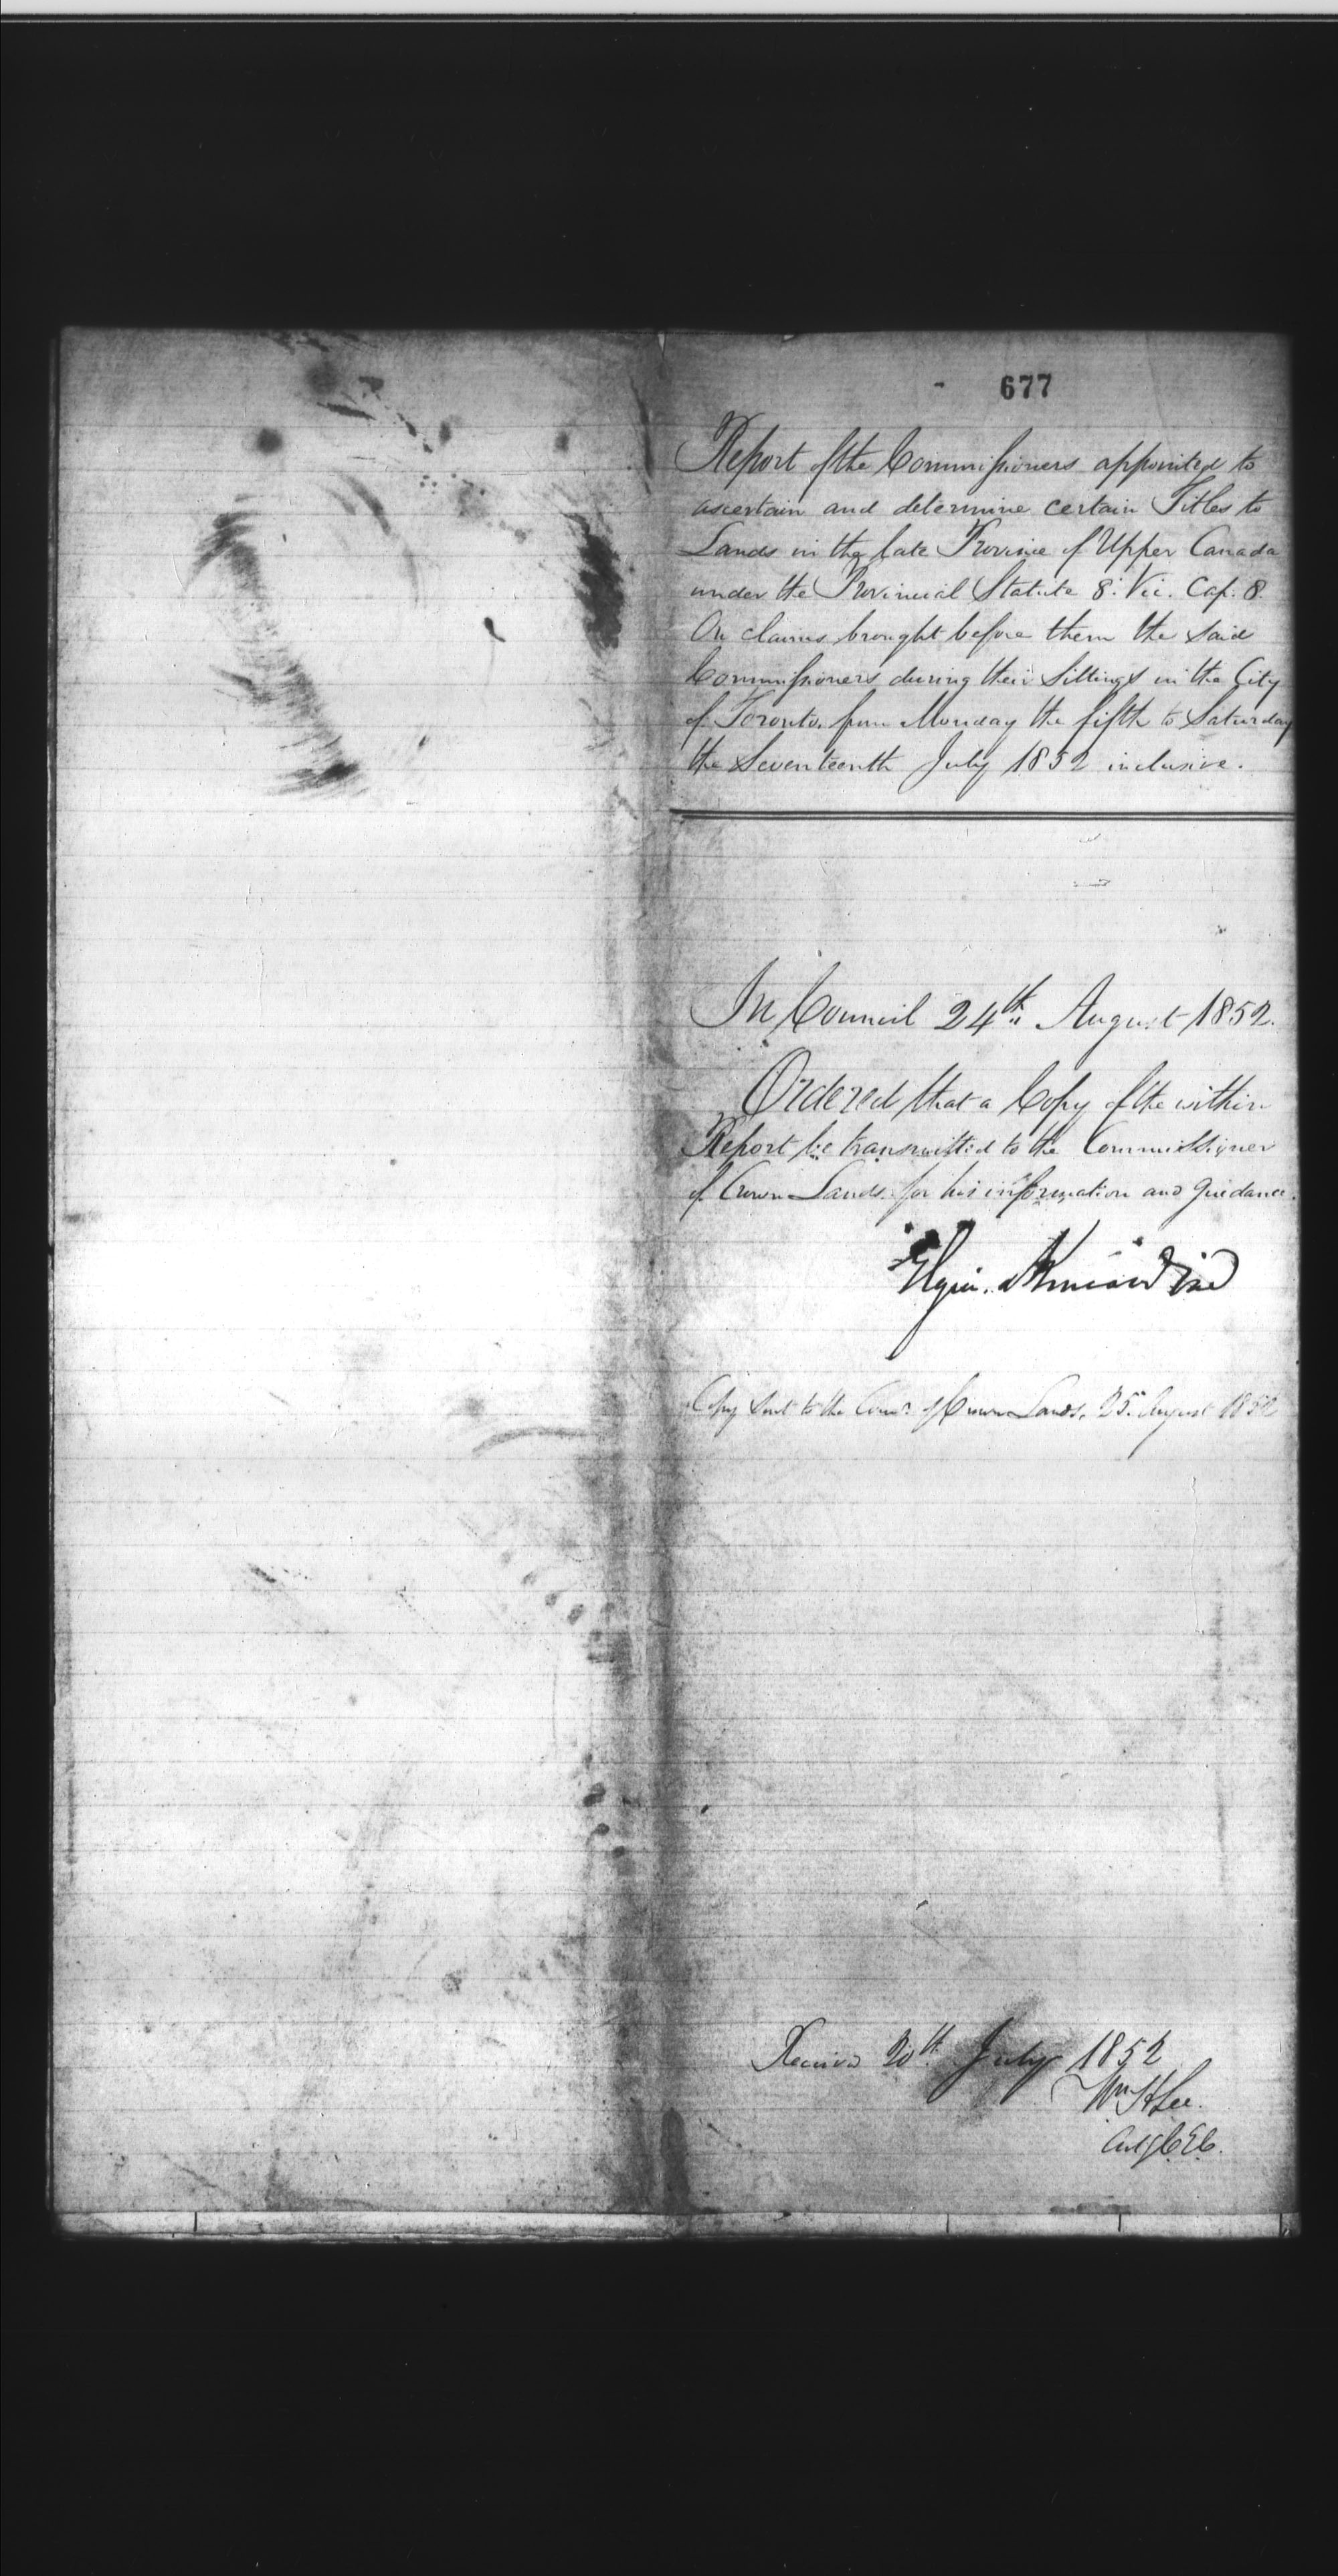 677
Report of the Commissioners appointed to
ascertain and determine certain Titles to
Lands in the late Province of Upper Canada
under the Provincial Statute 8: Vic. Cap. 8.
On claims brought before them the said
Commissioners during their Sittings in the City
of Toronto. from Monday the fifth to Saturday
the Seventeenth July 1852 inclusive.
In Council 24th August 1852.
Ordered that a Copy of the within
Report be transmitted to the Commissioner
of Crown Lands for his information and guidance.
Elgin & Kincardine
Copy sent to the Comr. of Crown Lands, 25. August 1852
Received 20th July 1852
Wm H Lee.